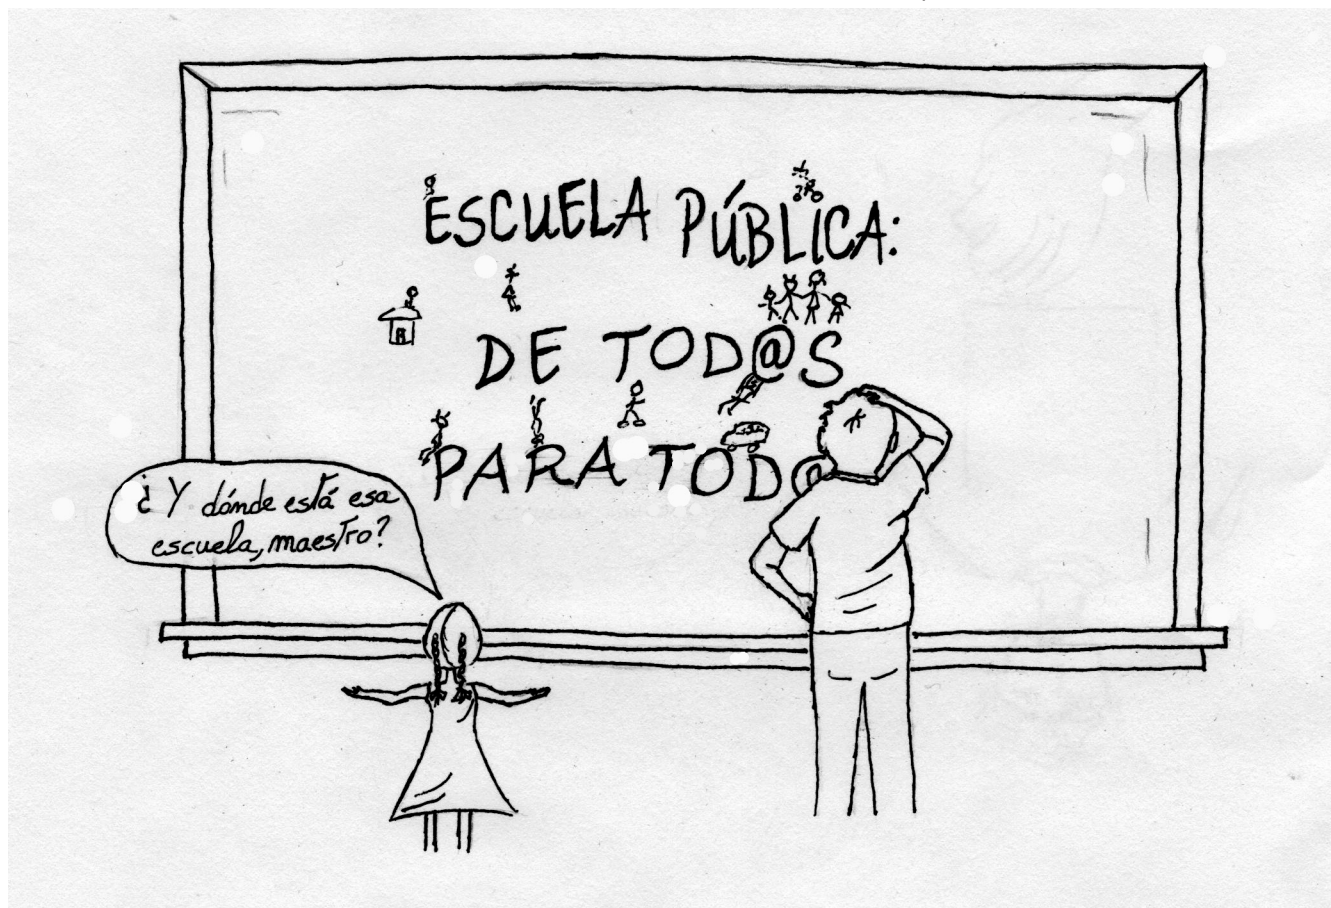 ESCUELA PÚBLICA:
DE TOD@S
PARA TOD@
¿Y dónde está esa
escuela, maestro?